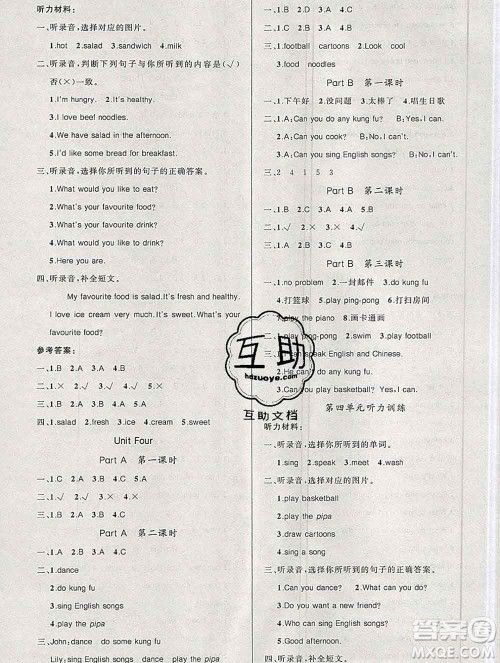 听力材料:
一、听录音,选择对应的图片。
1.hot 2.salad 3.sandwich 4.milk
二、听录音,判断下列句子与你所听到的内容是(√)
否(×)一致。
1.I'm hungry. 2.It's healthy.
3.I love beef noodles.
4.We have salad in the afternoon.
5.I'd like some bread for breakfast.
三、听录音,选择你所听到的句子的正确答案。
1.What would you like to eat?
2.What's your favourite food?
3.What's your favourite drink?
4.What would you like to drink?
5.Here you are.
四、听录音,补全短文。
My favourite food is salad. It's fresh and healthy.
I love ice cream very much. It's sweet. What's your
favourite food?
参考答案:
一、1.B 2.A 3.A 4.B
二、1.× 2.√ 3.√ 4.× 5.×
三、1.B 2.A 3.B 4.A 5.A
四、1.salad 2.fresh 3.ice 4.cream 5.sweet
Unit Four
Part A 第一课时
一、1.B 2.A 3.C 4.C
二、1.√ 2.× 3.√ 4.√
三、1.B 2.A 3.B 4.A
Part A 第二课时
一、1.B 2.A 3.A 4.C
二、1.dance
2.do kung fu
3.sing English songs
4.play the pipa
三、John: dance do some kung fu
Lily: sing English songs
二、1.B 2.A 3.A 4.B
三、1.football cartoons 2.Look cool
3.food noodles
Part B 第一课时
一、1.下午好 2.没问题 3.太棒了 4.唱生日歌
二、1.A:Can you do any kung fu? B:Yes, I can.
2.A:Can you cook? B:No, I can't.
3.A:Can you sing English songs? B:Yes, I can.
三、2 4 1 5 3
Part B 第二课时
一、1.B 2.C 3.A 4.A 5.B
二、1.√ 2.√ 3.× 4.×
Part B 第三课时
一、1.no problem 2.一封邮件 3.do kung fu
4.打篮球 5.play ping-pong 6.扫房间
7.play the piano 8.画卡通画
二、1.play ping-pong 2.swim 3.play football
speak English and Chinese.
2.No, I can't. do any kung fu.
3.Can you play basketball? Yes, I can.
第四单元听力训练
听力材料:
一、听录音,选择你所听到的单词。
1.sing 2.speak 3.meet 4.wash
二、听录音,选择对应的图片。
1.play basketball
2.play the pipa
3.draw cartoons
4.sing a song
三、听录音,选择你所听到的句子的正确答案。
1.Can you dance? 2.Can you swim?
3.What can you do for your friend?
4.Can you sing English songs?
5.Good afternoon.
互助
hdzuoye.com
互助文档
作业帮答案
MXQE.COM